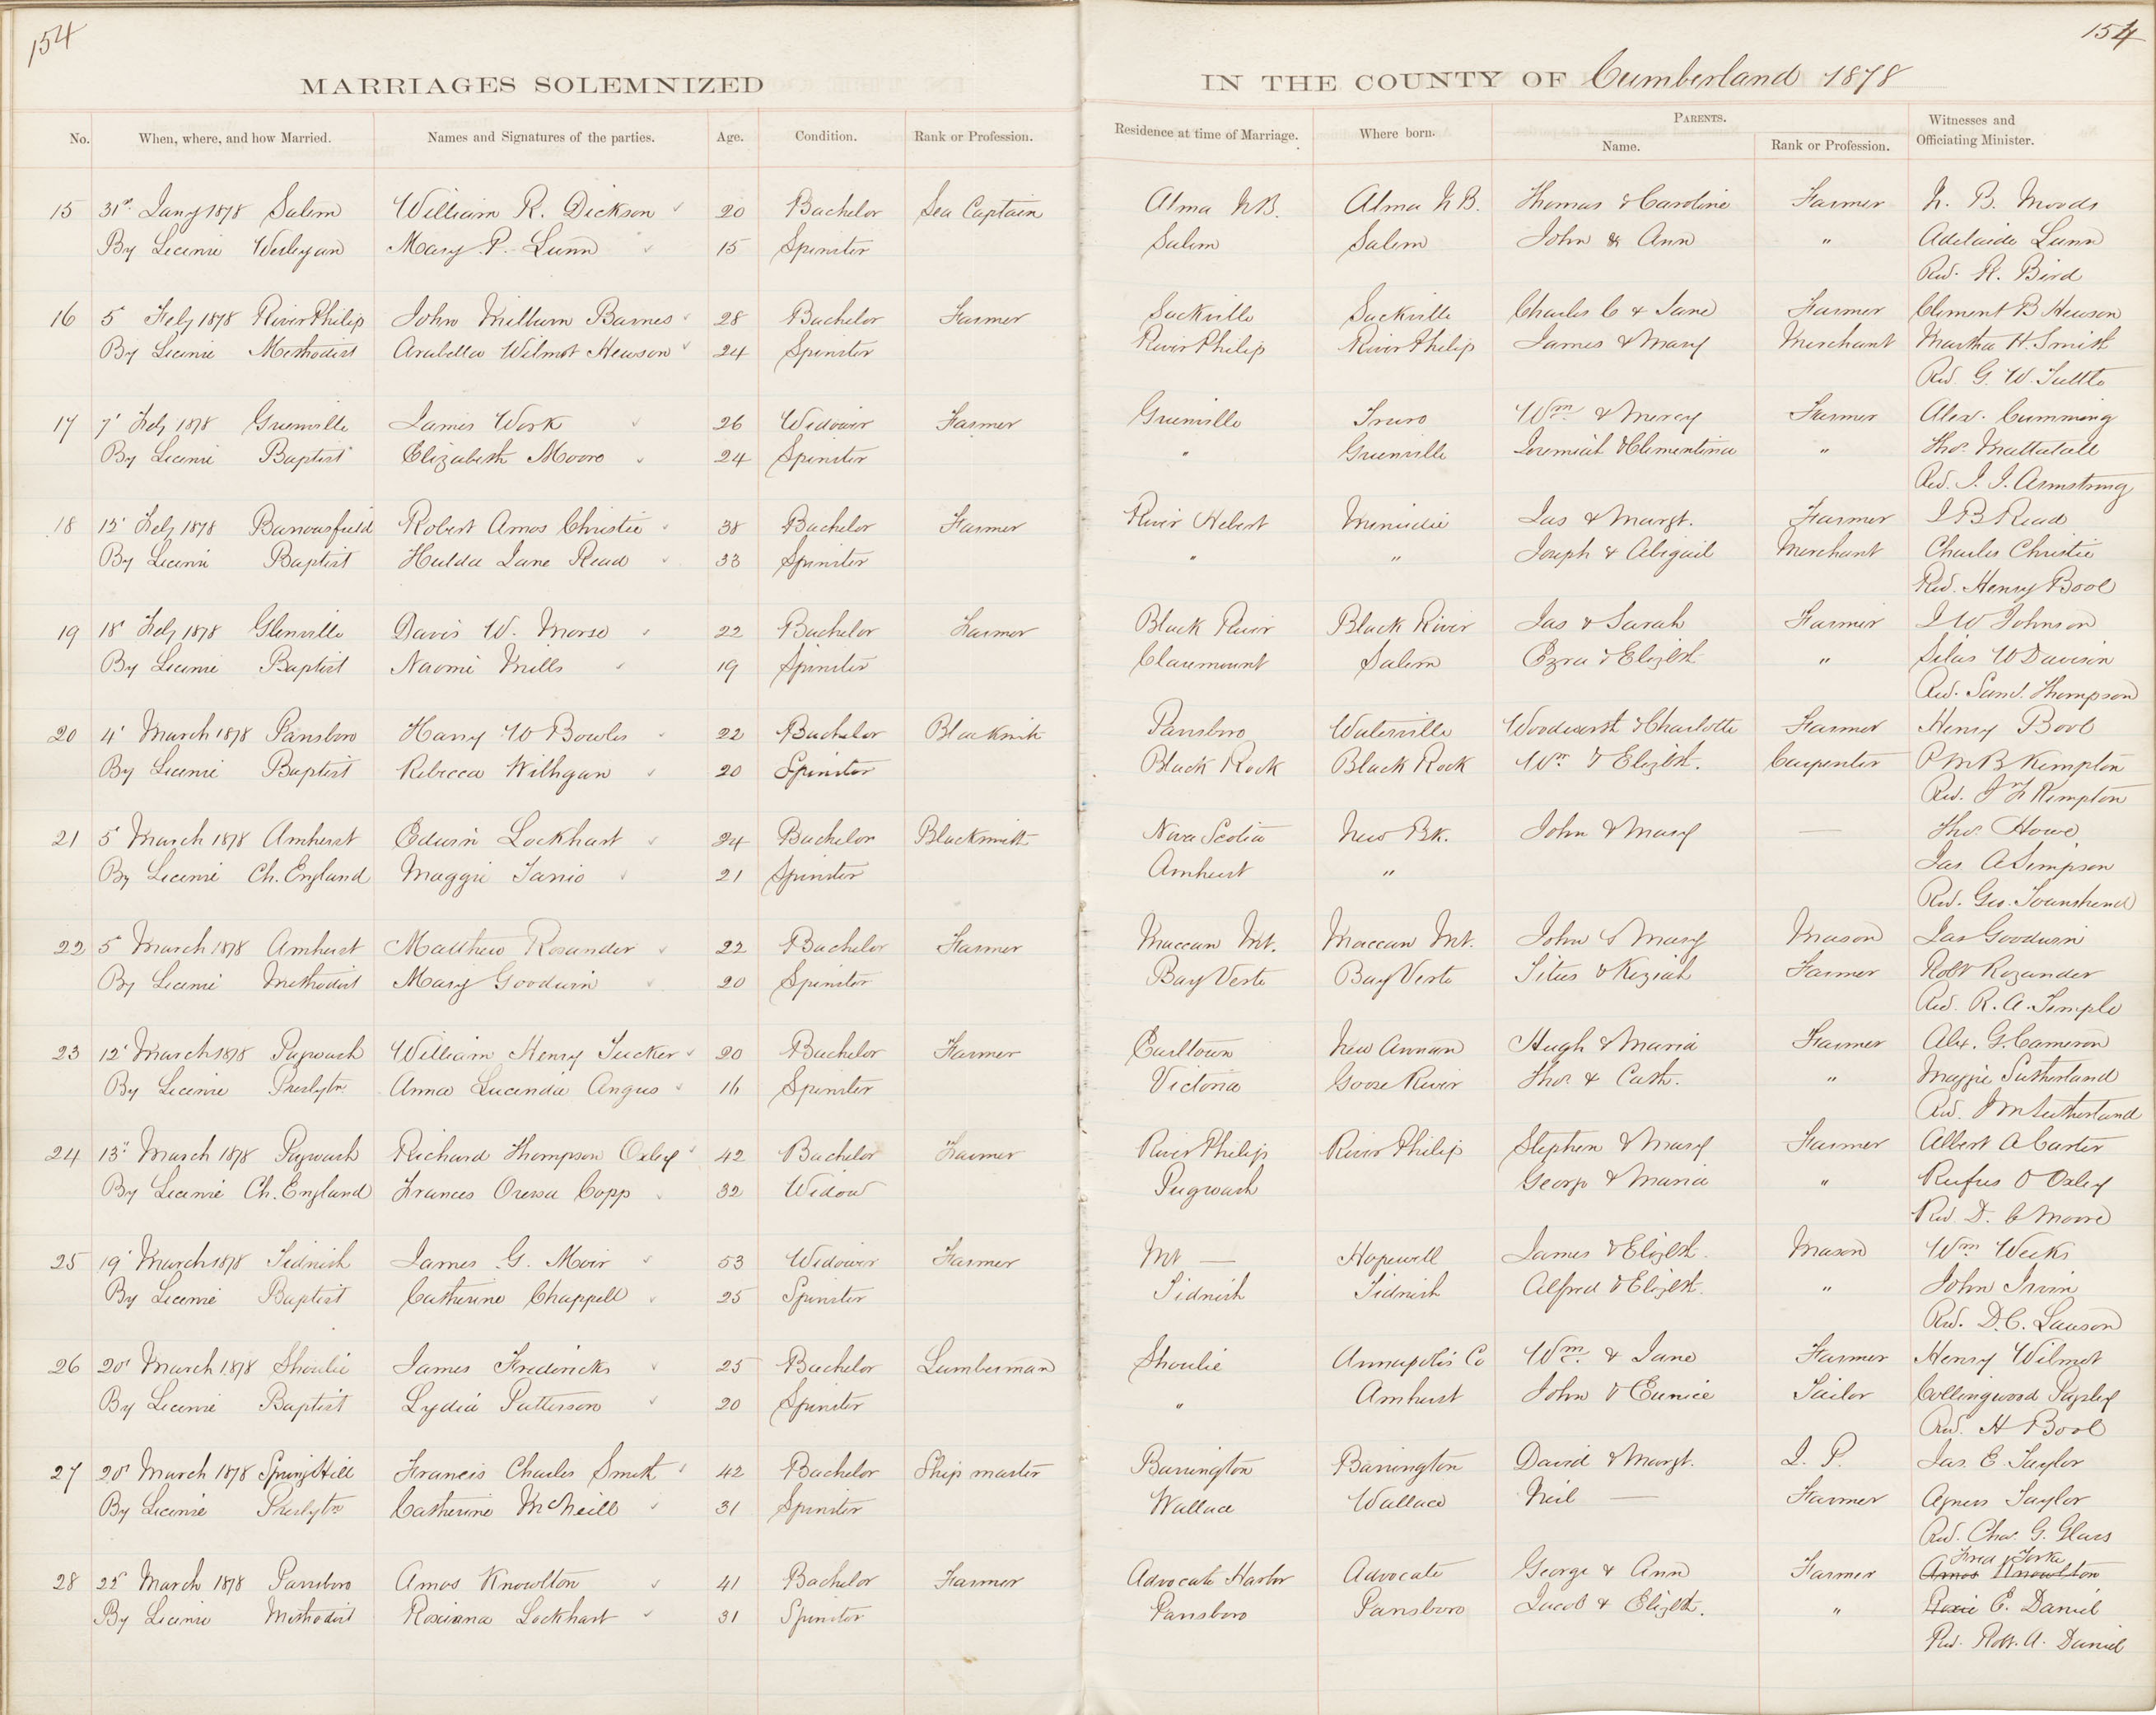 154
154
MARRIAGES SOLEMNIZED IN THE COUNTY OF Cumberland 1878
No. When, where, and how Married. Names and Signatures of the parties. Age. Condition. Rank or Profession. Residence at time of Marriage. Where born. PARENTS. Name. Rank or Profession. Witnesses and Officiating Minister.
15 31st Jany 1878 Salem William R. Dickson 20 Bachelor Sea Captain Alma N.B. Alma N.B. Thomas & Caroline Farmer N. B. Woods
By License Wesleyan Mary P. Lunn 15 Spinster Salem Salem John & Ann " Adelaide Lunn
Rev. R. Bird
16 5 Feby 1878 River Philip John Milburn Barnes 28 Bachelor Farmer Sackville Sackville Charles C & Jane Farmer Clement B Hewson
By License Methodist Arabella Wilmot Hewson 24 Spinster River Philip River Philip James & Mary Merchant Martha H. Smith
Rev. G. W. Tuttle
17 7 Feby 1878 Greenville James Work 26 Widower Farmer Greenville Truro Wm & Mercy Farmer Alex. Cumming
By License Baptist Elizabeth Moore 24 Spinster " Greenville Jeremiah & Clementina " Thos. Mattatall
Rev. J. I. Armstrong
18 12 Feby 1878 Barronsfield Robert Amos Christie 38 Bachelor Farmer River Hebert Minudie Jas & Margt. Farmer J B Read
By License Baptist Hulda Jane Read 33 Spinster " " Joseph & Abigail Merchant Charles Christie
Rev. Henry Bool
19 18 Feby 1878 Glenville Davis W. Morse 22 Bachelor Farmer Black River Black River Jas & Sarah Farmer J W Johnson
By License Baptist Naomi Mills 19 Spinster Claremount Salem Ezra & Elizbth " Silas W Davison
Rev. Saml. Thompson
20 4 March 1878 Parrsboro Harry W Bowles 22 Bachelor Blacksmith Parrsboro Waterville Woodworth & Charlotte Farmer Henry Bool
By License Baptist Rebecca Wilhgan 20 Spinster Black Rock Black Rock Wm & Elizbth. Carpenter P M B Kempton
Rev. J F Kempton
21 5 March 1878 Amherst Edwin Lockhart 24 Bachelor Blacksmith Nova Scotia New Bk. John & Mary — Thos. Howe
By License Ch. England Maggie Janis 21 Spinster Amherst " Jas. A Simpson
Rev. Geo. Townshend
22 5 March 1878 Amherst Matthew Rosander 22 Bachelor Farmer Maccan Mt. Maccan Mt. John & Mary Mason Jas Goodwin
By License Methodist Mary Goodwin 20 Spinster Bay Verte Bay Verte Titus & Keziah Farmer Robt Rozander
Rev. R. A. Temple
23 12 March 1878 Pugwash William Henry Tucker 20 Bachelor Farmer Earltown New Annan Hugh & Maria Farmer Alex. G. Cameron
By License Presbytn. Anna Lucinda Angus 16 Spinster Victoria Goose River Thos. & Cath. " Maggie Sutherland
Rev. J M Sutherland
24 13 March 1878 Pugwash Richard Thompson Oxley 42 Bachelor Farmer River Philip River Philip Stephen & Mary Farmer Albert A Carter
By License Ch. England Frances Oressa Copp 32 Widow Pugwash George & Maria " Rufus O Oxley
Rev D. C Moore
25 19 March 1878 Tidnish James G. Moir 53 Widower Farmer Mt — Hopewell James & Elizbth. Mason Wm Weeks
By License Baptist Catherine Chappell 25 Spinster Tidnish Tidnish Alfred & Elizbth. " John Irvin
Rev. D. C. Lawson
26 20 March 1878 Shoulie James Fredericks 25 Bachelor Lumberman Shoulie Annapolis Co Wm. & Jane Farmer Henry Wilmot
By License Baptist Lydia Patterson 20 Spinster " Amherst John & Eunice Tailor Collingwood Pugsley
Rev. H Bool
27 20 March 1878 Spring Hill Francis Charles Smith 42 Bachelor Ship master Barrington Barrington David & Margt. J. P. Jas. E. Taylor
By License Presbytn Catherine McNeill 31 Spinster Wallace Wallace Neil — Farmer Agness Taylor
Rev. Chas. G. Glass
28 22 March 1878 Parrsboro Amos Knowlton 41 Bachelor Farmer Advocate Harbor Advocate George & Ann Farmer Amos Knowlton
By License Methodist Roxanna Lockhart 31 Spinster Parrsboro Parrsboro Jacob & Elizbth. " Roxie E. Daniel
Rev. Robt. A. Daniel